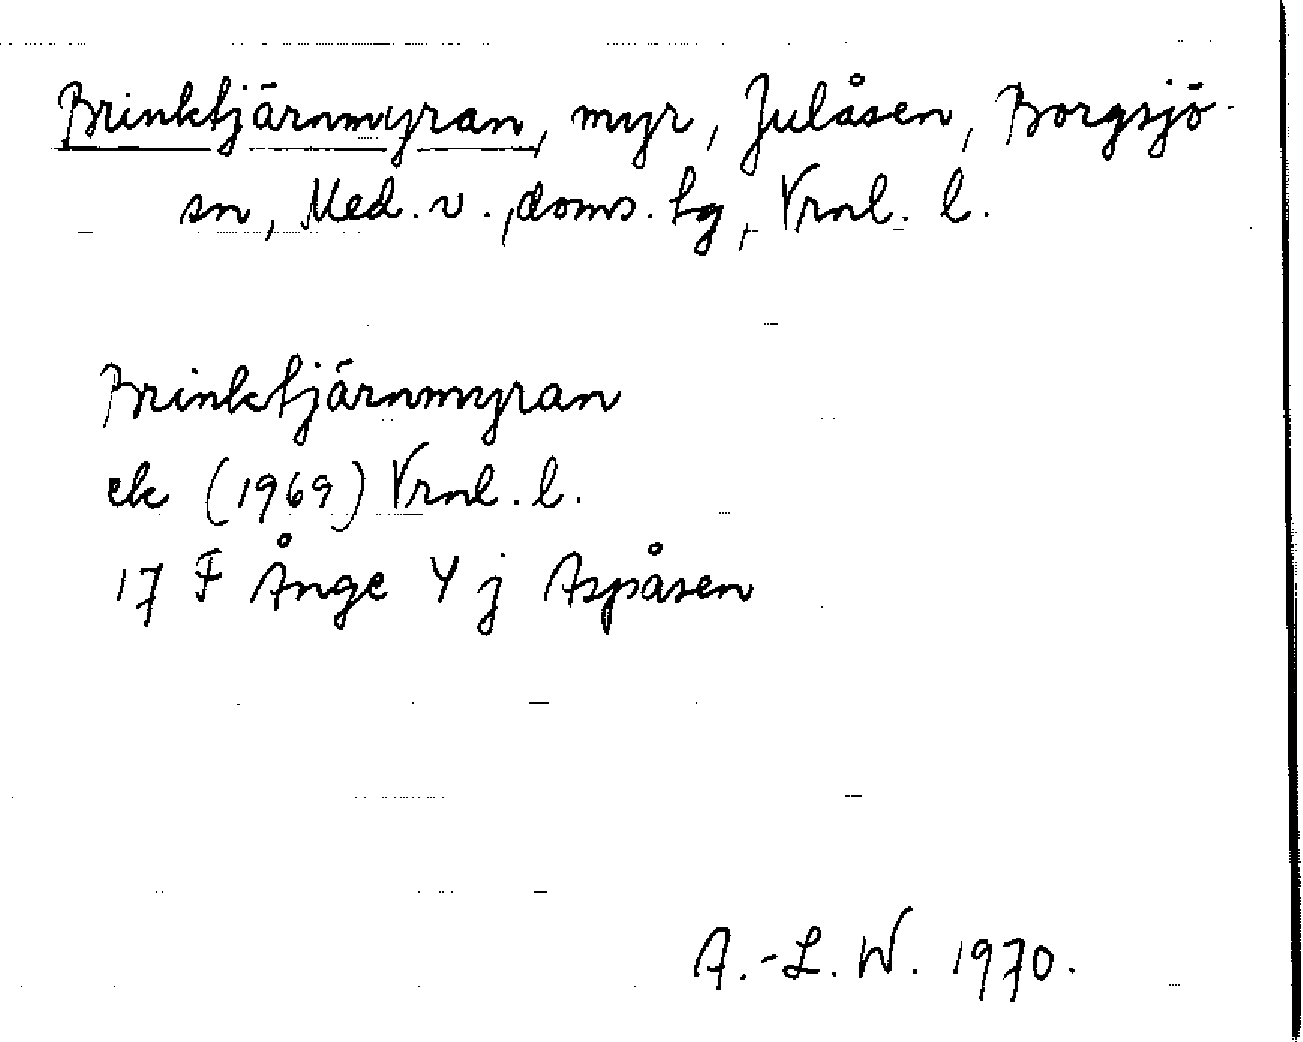 Brinktjärnmyran, myr, Julåsen, Borgsjö
sn, Med. v., doms. hg, Vrnl. l.
Brinktjärnmyran
ek (1969) Vrnl. l.
17 F Ånge Y j Aspåsen
A.-L. W. 1970.